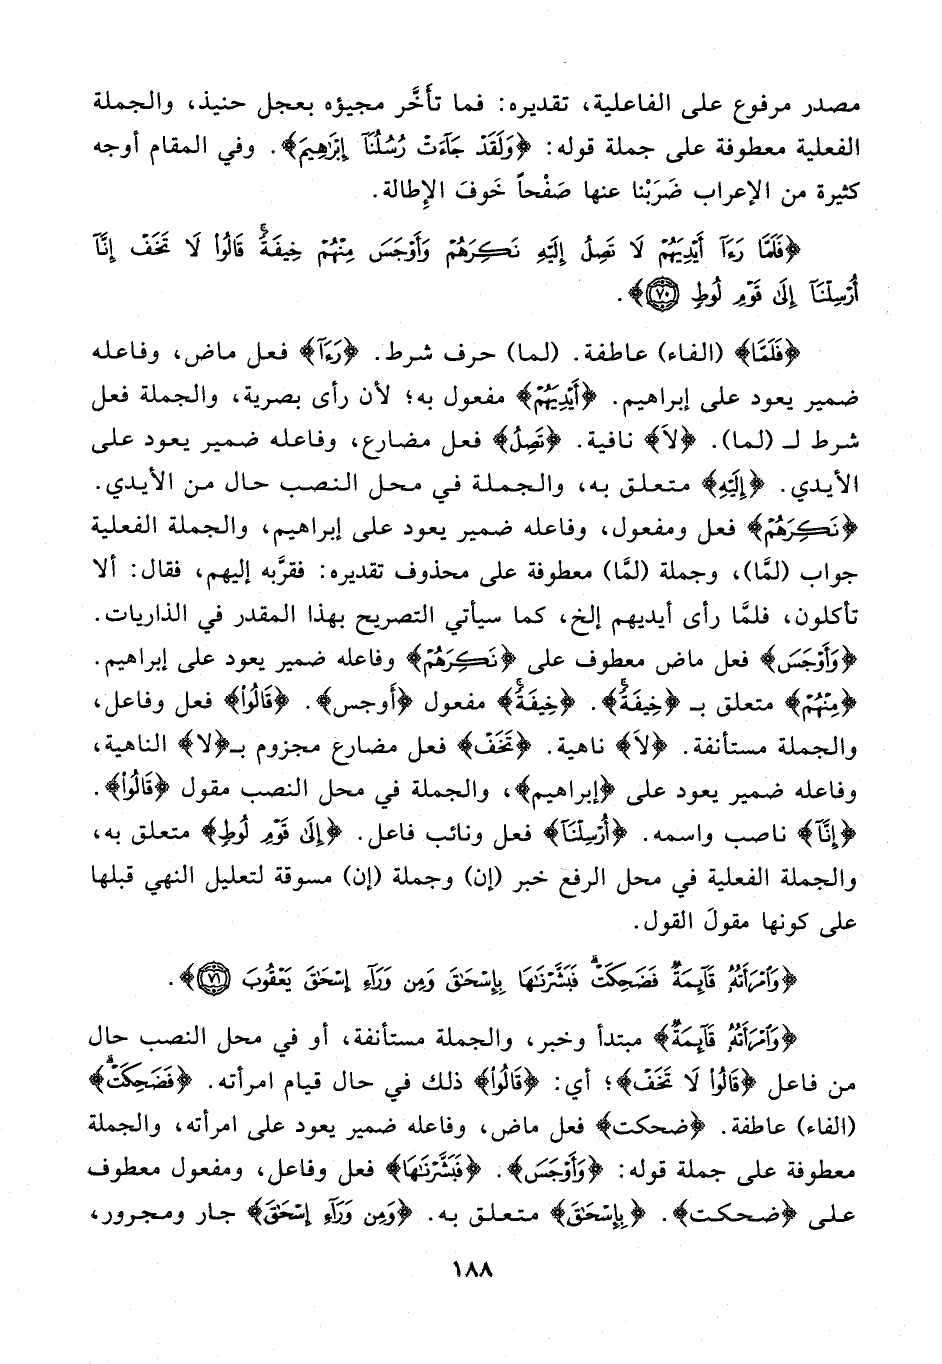 مصدر مرفوع على الفاعلية، تقديره: فما تأَخَّر مجيؤه بعجل حنيذ، والجملة
الفعلية معطوفة على جملة قوله: ﴿وَلَقَدْ جَآءَتْ رُسُلُنَآ إِبْرَٰهِيمَ﴾. وفي المقام أوجه
كثيرة من الإعراب ضَرَبْنا عنها صَفْحاً خَوفَ الإِطالة.
﴿فَلَمَّا رَءَآ أَيْدِيَهُمْ لَا تَصِلُ إِلَيْهِ نَكِرَهُمْ وَأَوْجَسَ مِنْهُمْ خِيفَةً ۚ قَالُوا۟ لَا تَخَفْ إِنَّآ
أُرْسِلْنَآ إِلَىٰ قَوْمِ لُوطٍ ٧٠﴾.
﴿فَلَمَّا﴾ (الفاء) عاطفة. (لما) حرف شرط. ﴿رَءَآ﴾ فعل ماض، وفاعله
ضمير يعود على إبراهيم. ﴿أَيْدِيَهُمْ﴾ مفعول به؛ لأن رأى بصرية، والجملة فعل
شرط لـ (لما). ﴿لَا﴾ نافية. ﴿تَصِلُ﴾ فعل مضارع، وفاعله ضمير يعود على
الأيدي. ﴿إِلَيْهِ﴾ متعلق به، والجملة في محل النصب حال من الأيدي.
﴿نَكِرَهُمْ﴾ فعل ومفعول، وفاعله ضمير يعود على إبراهيم، والجملة الفعلية
جواب (لمَّا)، وجملة (لمَّا) معطوفة على محذوف تقديره: فقرَّبه إليهم، فقال: ألا
تأكلون، فلمَّا رأى أيديهم إلخ، كما سيأتي التصريح بهذا المقدر في الذاريات.
﴿وَأَوْجَسَ﴾ فعل ماض معطوف على ﴿نَكِرَهُمْ﴾ وفاعله ضمير يعود على إبراهيم.
﴿مِنْهُمْ﴾ متعلق بـ ﴿خِيفَةً ۚ﴾. ﴿خِيفَةً ۚ﴾ مفعول ﴿أوجس﴾. ﴿قَالُوا۟﴾ فعل وفاعل،
والجملة مستأنفة. ﴿لَا﴾ ناهية. ﴿تَخَفْ﴾ فعل مضارع مجزوم بـ﴿لا﴾ الناهية،
وفاعله ضمير يعود على ﴿إبراهيم﴾، والجملة في محل النصب مقول ﴿قَالُوا۟﴾.
﴿إِنَّآ﴾ ناصب واسمه. ﴿أُرْسِلْنَآ﴾ فعل ونائب فاعل. ﴿إِلَىٰ قَوْمِ لُوطٍ﴾ متعلق به،
والجملة الفعلية في محل الرفع خبر (إن) وجملة (إن) مسوقة لتعليل النهي قبلها
على كونها مقولَ القول.
﴿وَٱمْرَأَتُهُۥ قَآئِمَةٌ فَضَحِكَتْ فَبَشَّرْنَٰهَا بِإِسْحَٰقَ وَمِن وَرَآءِ إِسْحَٰقَ يَعْقُوبَ ٧١﴾.
﴿وَٱمْرَأَتُهُۥ قَآئِمَةٌ﴾ مبتدأ وخبر، والجملة مستأنفة، أو في محل النصب حال
من فاعل ﴿قَالُوا۟ لَا تَخَفْ﴾؛ أي: ﴿قَالُوا۟﴾ ذلك في حال قيام امرأته. ﴿فَضَحِكَتْ﴾
(الفاء) عاطفة. ﴿ضحكت﴾ فعل ماض، وفاعله ضمير يعود على امرأته، والجملة
معطوفة على جملة قوله: ﴿وَأَوْجَسَ﴾. ﴿فَبَشَّرْنَٰهَا﴾ فعل وفاعل، ومفعول معطوف
على ﴿ضحكت﴾. ﴿بِإِسْحَٰقَ﴾ متعلق به. ﴿وَمِن وَرَآءِ إِسْحَٰقَ﴾ جار ومجرور،
١٨٨